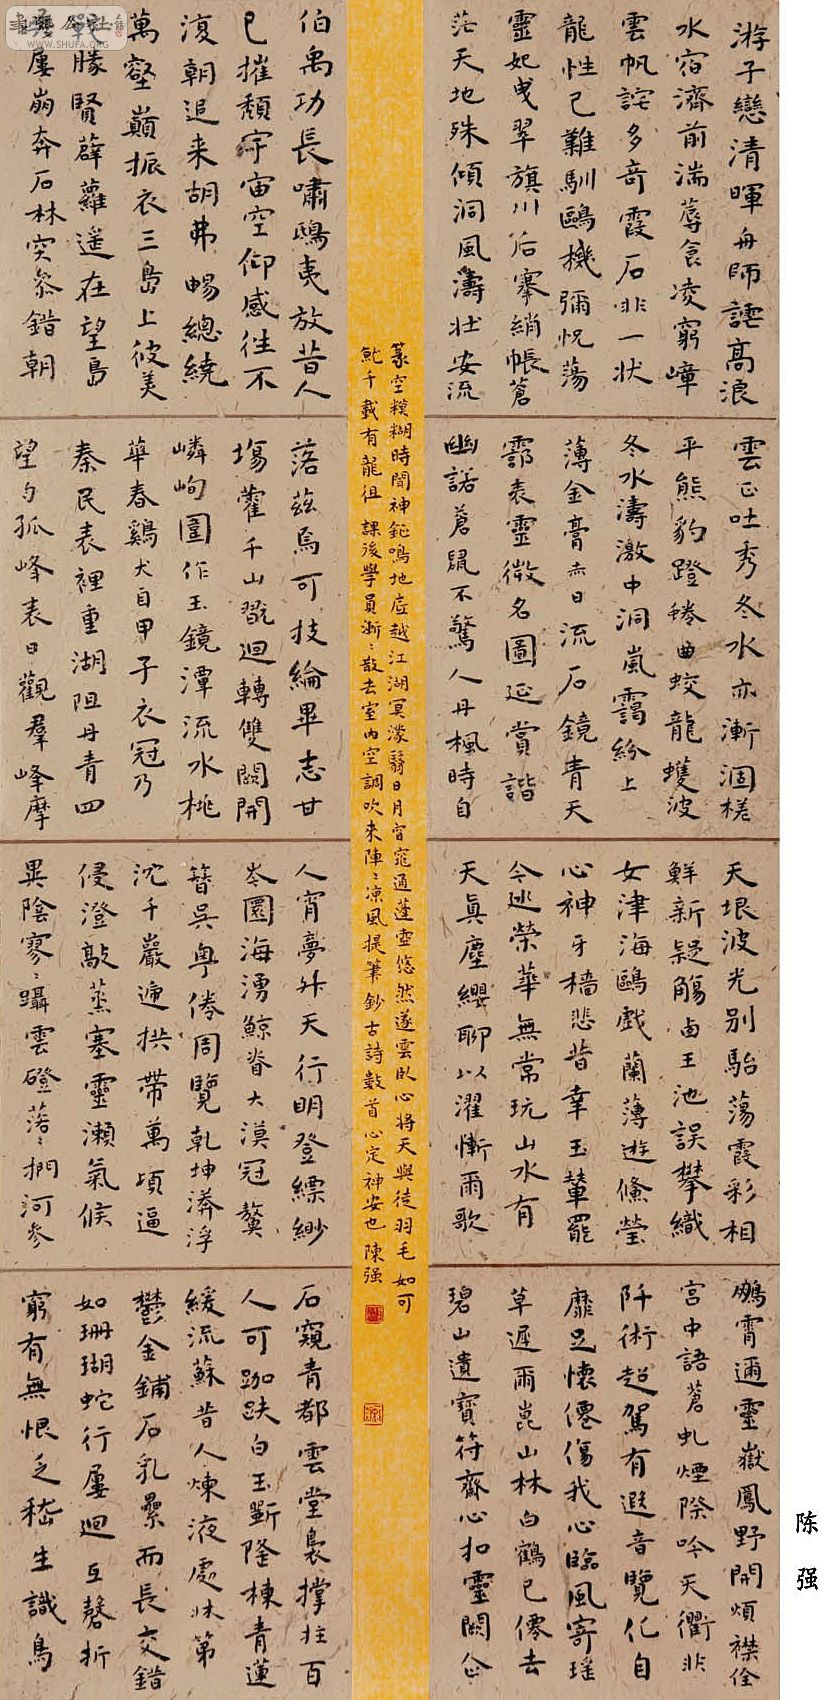 游子戀清暉舟師詫高浪
水宿濟前湍蓐食凌窮嶂
雲帆詫多奇霞石非一狀
龍性已難馴鷗機彌怳蕩
靈妃曳翠旗川后搴綃帳蒼
茫天地殊傾洞風濤壯安流
伯禹功長嘯鴟夷放昔人
已摧頹宇宙空仰感往不
復朝追来胡弗暢總繞
萬壑巔振衣三島上彼美
朦賢薜蘿遥在望島
屢崩奔石林突叅錯朝
雲正吐秀冬水亦漸涸槎
平熊豹蹬蜷曲蛟龍蠖波
冬水濤激中洞嵐靄紛上
薄金膏赤日流石鏡青天
鄠表靈微名圖延賞諧
幽諾蒼鼠不驚人丹楓時自
落茲焉可投綸畢志甘
場藿千山戬迴轉雙闕開
嶙峋圖作玉鏡潭流水桃
華春鷄犬自甲子衣冠乃
秦民表裡重湖阻丹青四
望勻孤峰表日觀羣峰摩
天垠波光别駘蕩霞彩相
鮮新疑觴卤王池誤攀織
女津海鷗戲蘭薄遊鯈瑩
心神牙檣悲昔幸玉輦罷
今巡榮華無常玩山水有
天真塵纓聊以濯慚爾歌
人宵夢升天行明登縹緲
岑圜海湧鯨脊大漠冠鰲
簪吳粤倦周覽乾坤漭浮
沈千巖遞拱帶萬頃逼
侵澄敲蒸塞靈瀨氣候
異陰寥〻躡雲磴落〻捫河參
鵷霄邇靈嶽鳳野開煩襟佺
宮中語蒼虬煙際吟天衢非
阡術超駕有遐音覽化自
靡足懷僊傷我心臨風寄瑤
草遲爾崑山林白鶴已僊去
碧山遺寶符齋心扣靈闕企
石窺青都雲堂裊撑拄百
人可跏趺白玉斲隆棟青蓮
緩流蘇昔人煉液處牀第
鬱金鋪石乳纍而長交錯
如珊瑚蛇行屢迴互磬折
窮有無恨乏嵇生識鳥
篆空模糊時聞神鉦鳴地底越江湖冥濛翳日月窅窕通蓬壺悠然遂雲臥心將天與徒羽毛如可
鮀千載有龍徂 課後學員漸〻散去室内空調吹来陣〻凉風提筆鈔古詩數首心定神安也 陳强
陈强
書法公社
WWW.SHUFA.ORG